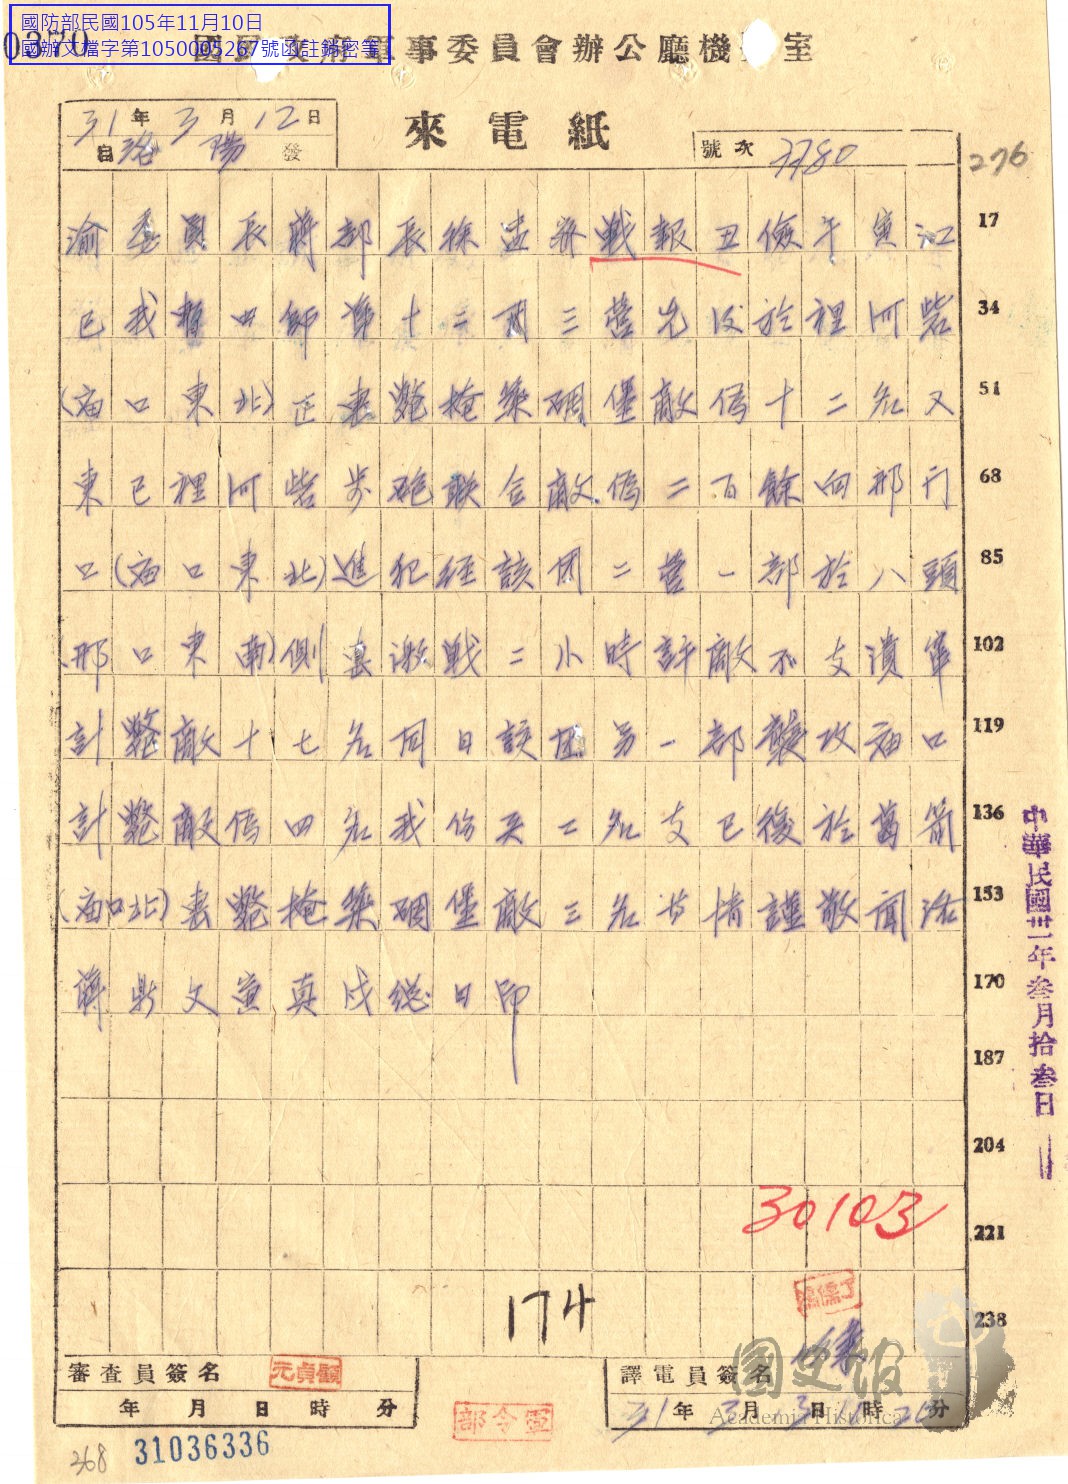 國防部民國105年11月10日
國辦文檔字第1050005267號函註銷密等
國民政府軍事委員會辦公廳機室
31年3月12日
自洛陽發
來電紙
號次 7780
276
渝委員長蔣部長徐孟密戰報丑儉午寅江 17
已我暫四師第十二團三營先後於裡河砦 34
(庙口東北)正表斃掩築碉堡敵偽十二名又 51
東已裡河砦步砲联合敵偽二百餘向邢 68
口(庙口東北)進犯經該团二營一部於八頭 85
(邢口東南)側表激戰二小時許敵不支潰竄 102
計斃敵十七名同日該团另一部襲攻庙口 119
計斃敵偽四名我伤兵二名支已後於葛箭 136
(庙口北)表斃掩築碉堡敵三名等情謹敬聞洛 153
蔣鼎文寅真戌總日印 170
187
204
221
238
中華民國卅一年叁月拾叁日
30103
174
審查員簽名 顧貞元
年 月 日 時 分
譯電員簽名
31年3月3日11時20分
軍令部
31036336
368
國史館
Academia Historica